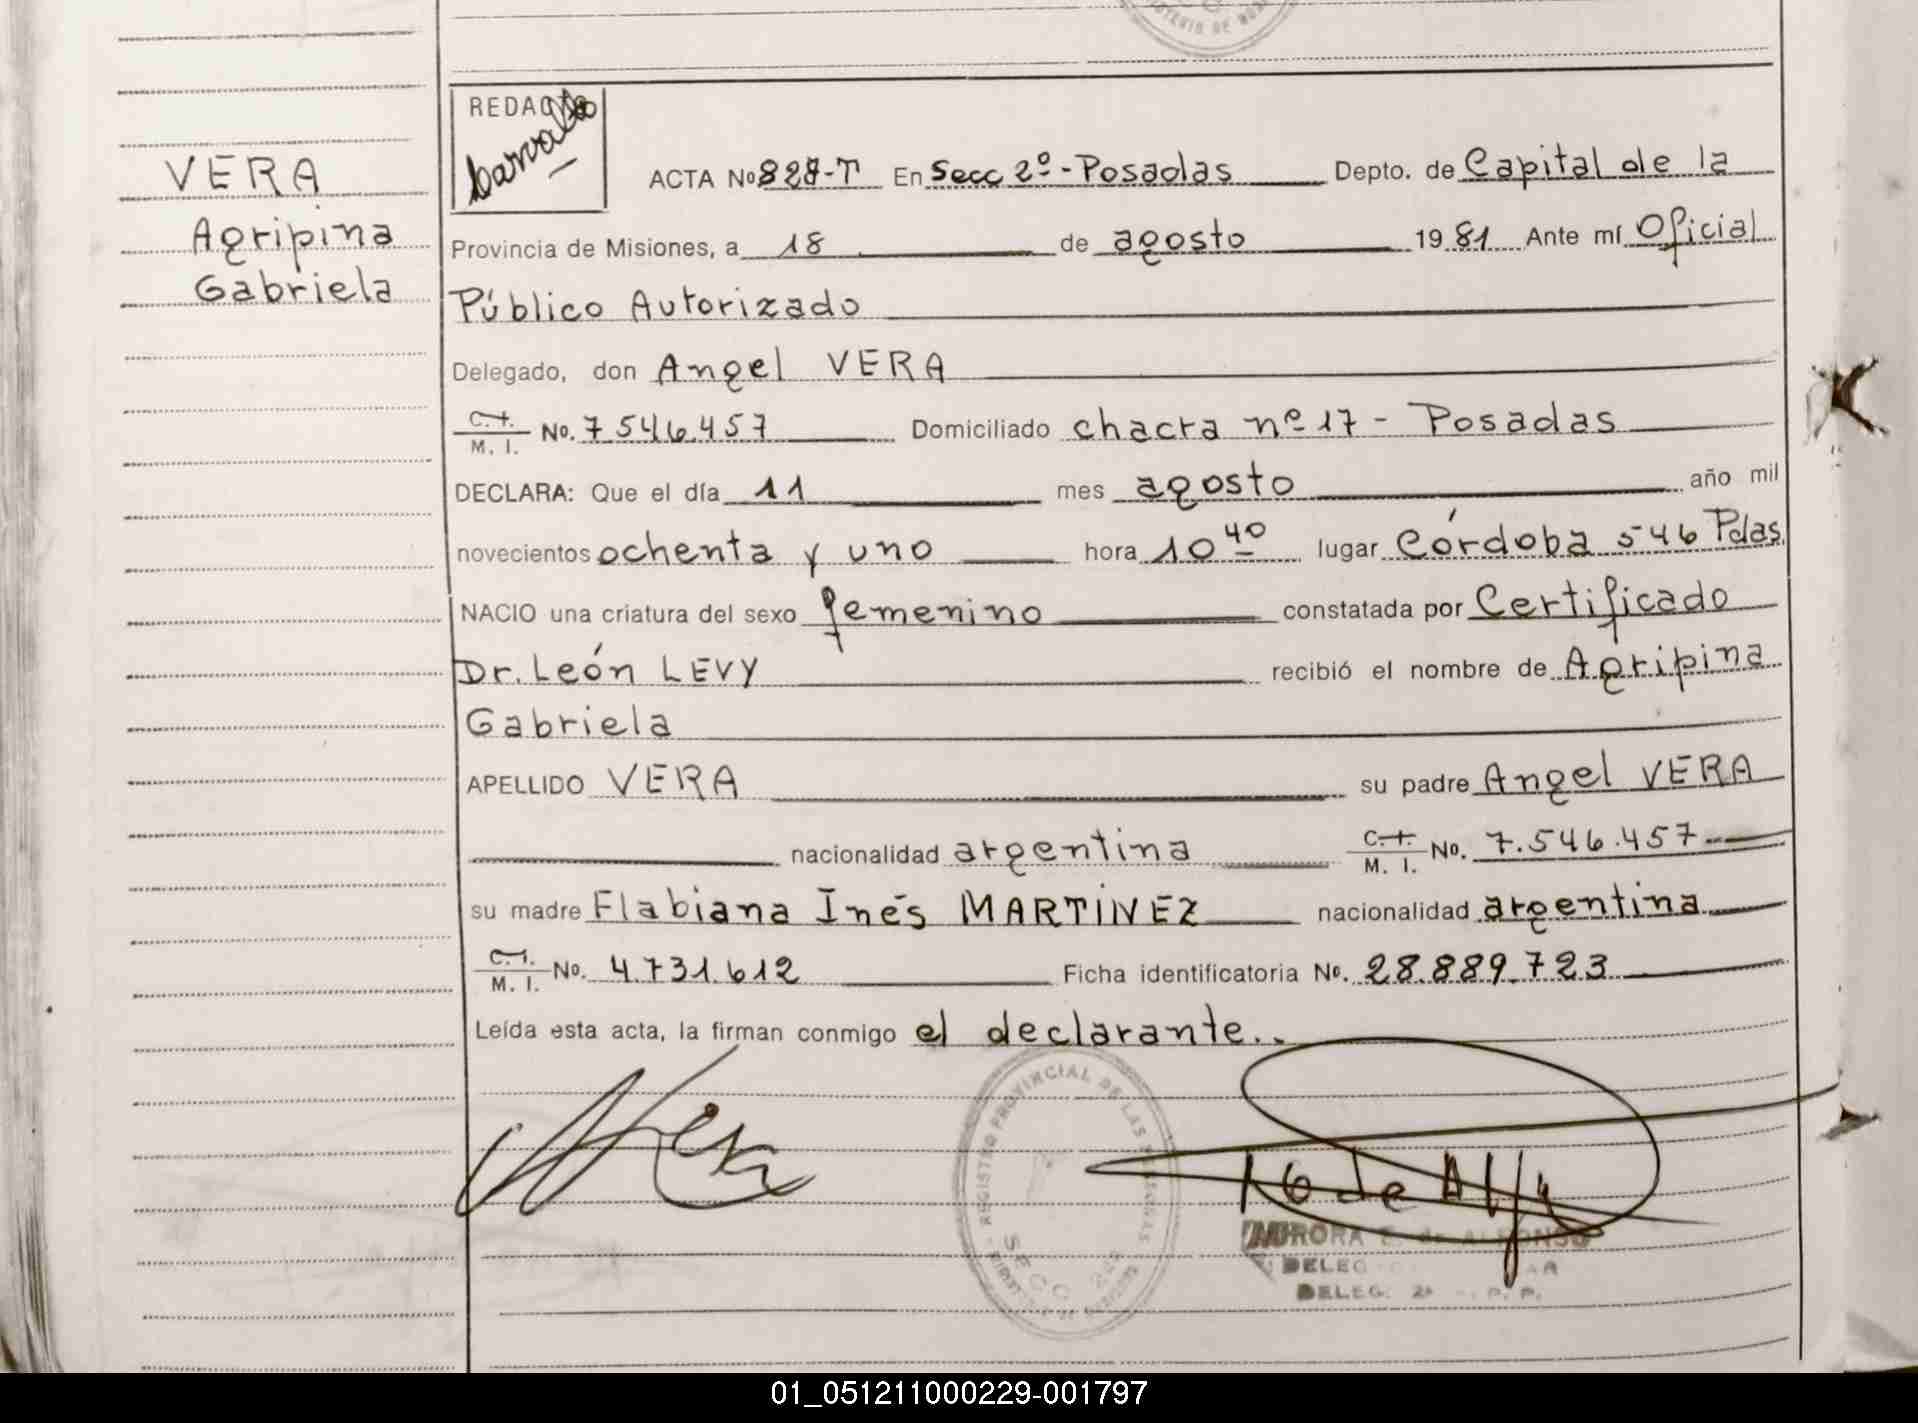 TERIO DE
VERA
Agripina
Gabriela
REDACTO
ACTA No 828-T En Secc 2º - Posadas Depto. de Capital de la
Provincia de Misiones, a 18 de agosto 1981 Ante mí Oficial
Público Autorizado
Delegado, don Angel VERA
C.I. M. I. No. 7.546.457 Domiciliado chacra nº 17 - Posadas
DECLARA: Que el día 11 mes agosto año mil
novecientos ochenta y uno hora 10 40 lugar Córdoba 546 Pdas.
NACIO una criatura del sexo femenino constatada por Certificado
Dr. León LEVY recibió el nombre de Agripina
Gabriela
APELLIDO VERA su padre Angel VERA
nacionalidad argentina C.I. M. I. No. 7.546.457
su madre Flabiana Inés MARTINEZ nacionalidad argentina
C.I. M. I. No. 4.731.612 Ficha identificatoria No. 28.889.723
Leída esta acta, la firman conmigo el declarante..
REGISTRO PROVINCIAL DE LAS PERSONAS
SECC. 2ª
AURORA E. de ALFONSO
DELEG. 2ª
01_051211000229-001797